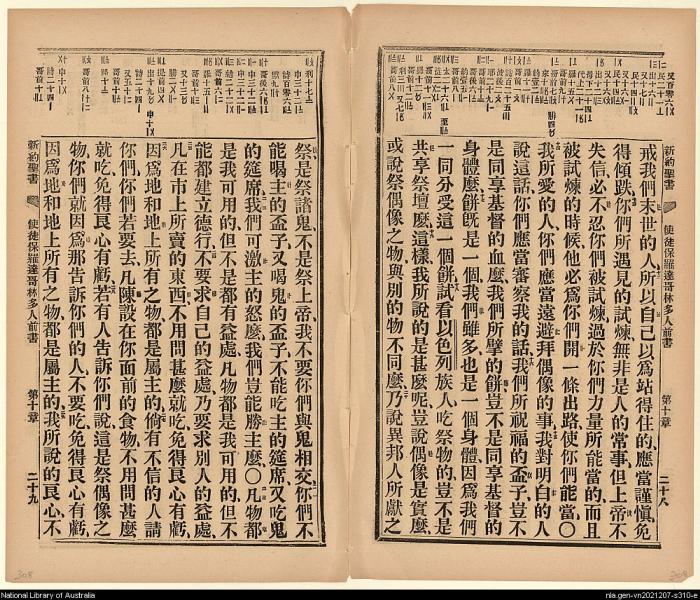 新約聖書
使徒保羅達哥林多人前書
第十章
二十八
戒我們末世的人所以自己以爲站得住的應當謹愼免
得傾跌你們所遇見的試煉無非是人的常事但上帝不
失信必不忍你們被試煉過於你們力量所能當的而且
被試煉的時候他必爲你們開一條出路使你們能當○
我所愛的人你們應當遠避拜偶像的事我對明白的人
說這話你們應當審察我的話我們所祝福的盃子豈不
是同享基督的血麽我們所擘的餅豈不是同享基督的
身體麽餅旣是一個我們雖多也是一個身體因爲我們
一同分受這一個餅試看以色列族人吃祭物的豈不是
共享祭壇麽這樣我所說的是甚麽呢豈說偶像是實麽
或說祭偶像之物與別的物不同麽乃說異邦人所獻之
祭是祭諸鬼不是祭上帝我不要你們與鬼相交你們不
能喝主的盃子又喝鬼的盃子不能吃主的筵席又吃鬼
的筵席我們可激主的怒麽我們豈能勝主麽○凡物都
是我可用的但不是都有益處凡物都是我可用的但不
能都建立德行不要求自己的益處乃要求別人的益處
凡在市上所賣的東西不用問甚麽就吃免得良心有虧
因爲地和地上所有之物都是屬主的倘有不信的人請
你們你們若要去凡陳設在你面前的食物不用問甚麽
就吃免得良心有虧若有人告訴你們說這是祭偶像之
物你們就因爲那告訴你們的人不要吃免得良心有虧
因爲地和地上所有之物都是屬主的我所說的良心不
新約聖書
使徒保羅達哥林多人前書
第十章
二十九
National Library of Australia
nla.gen-vn2021207-s310-e